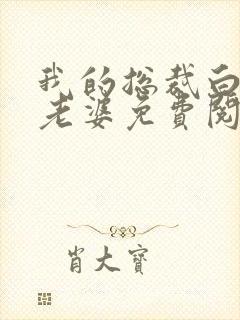 我的总裁白
老婆免費閱
肖大寶